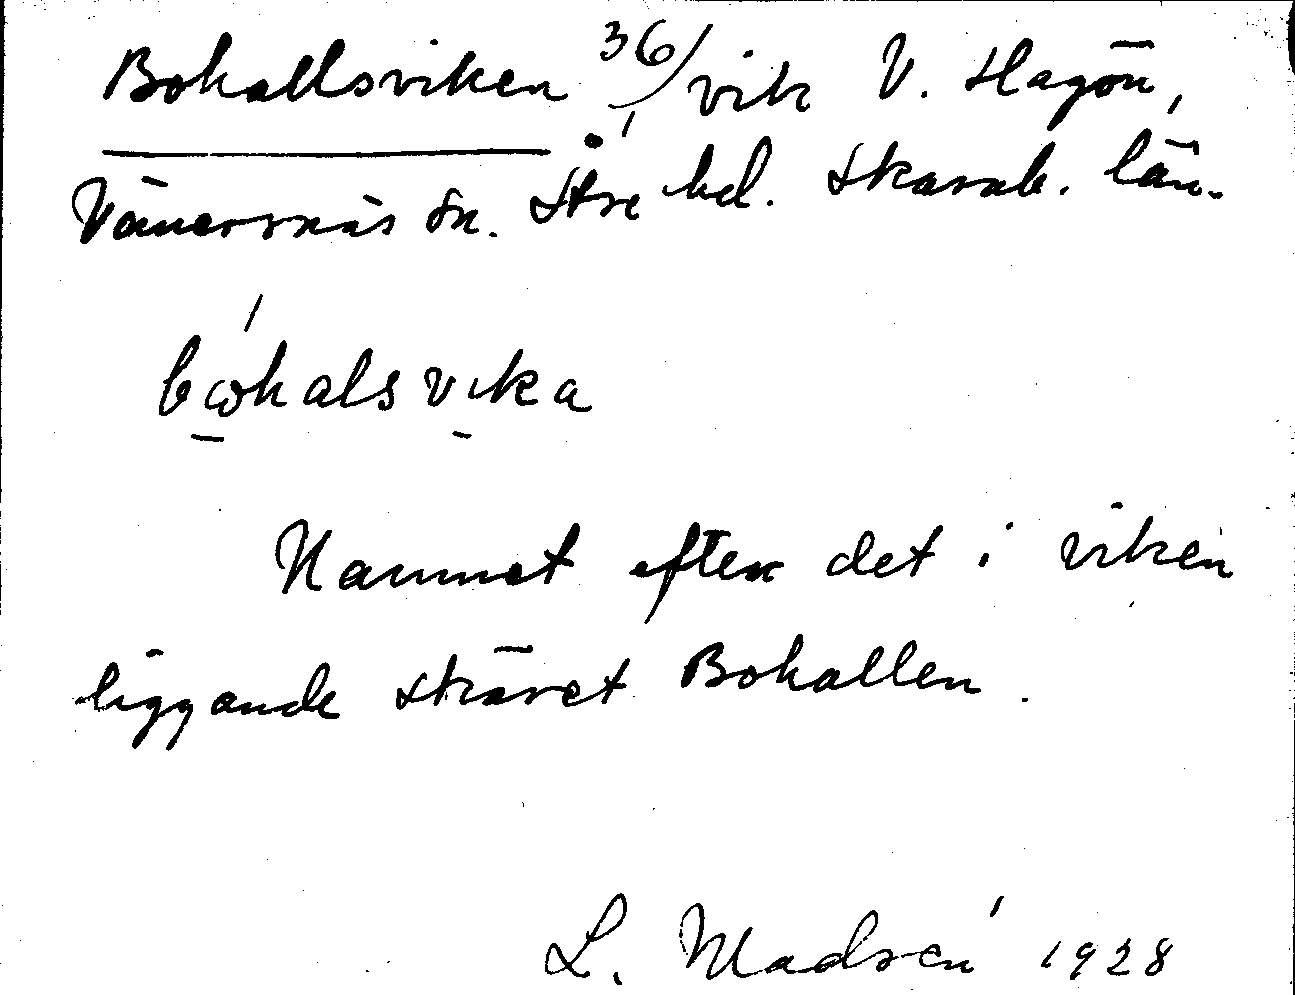 Bohallsviken 36/ vik V. Hagön,
Vänersnäs sn. Åse hd. Skarab. län.
bωhalsvika
Namnet efter det i viken
liggande skäret Bohallen.
L. Madsén 1928